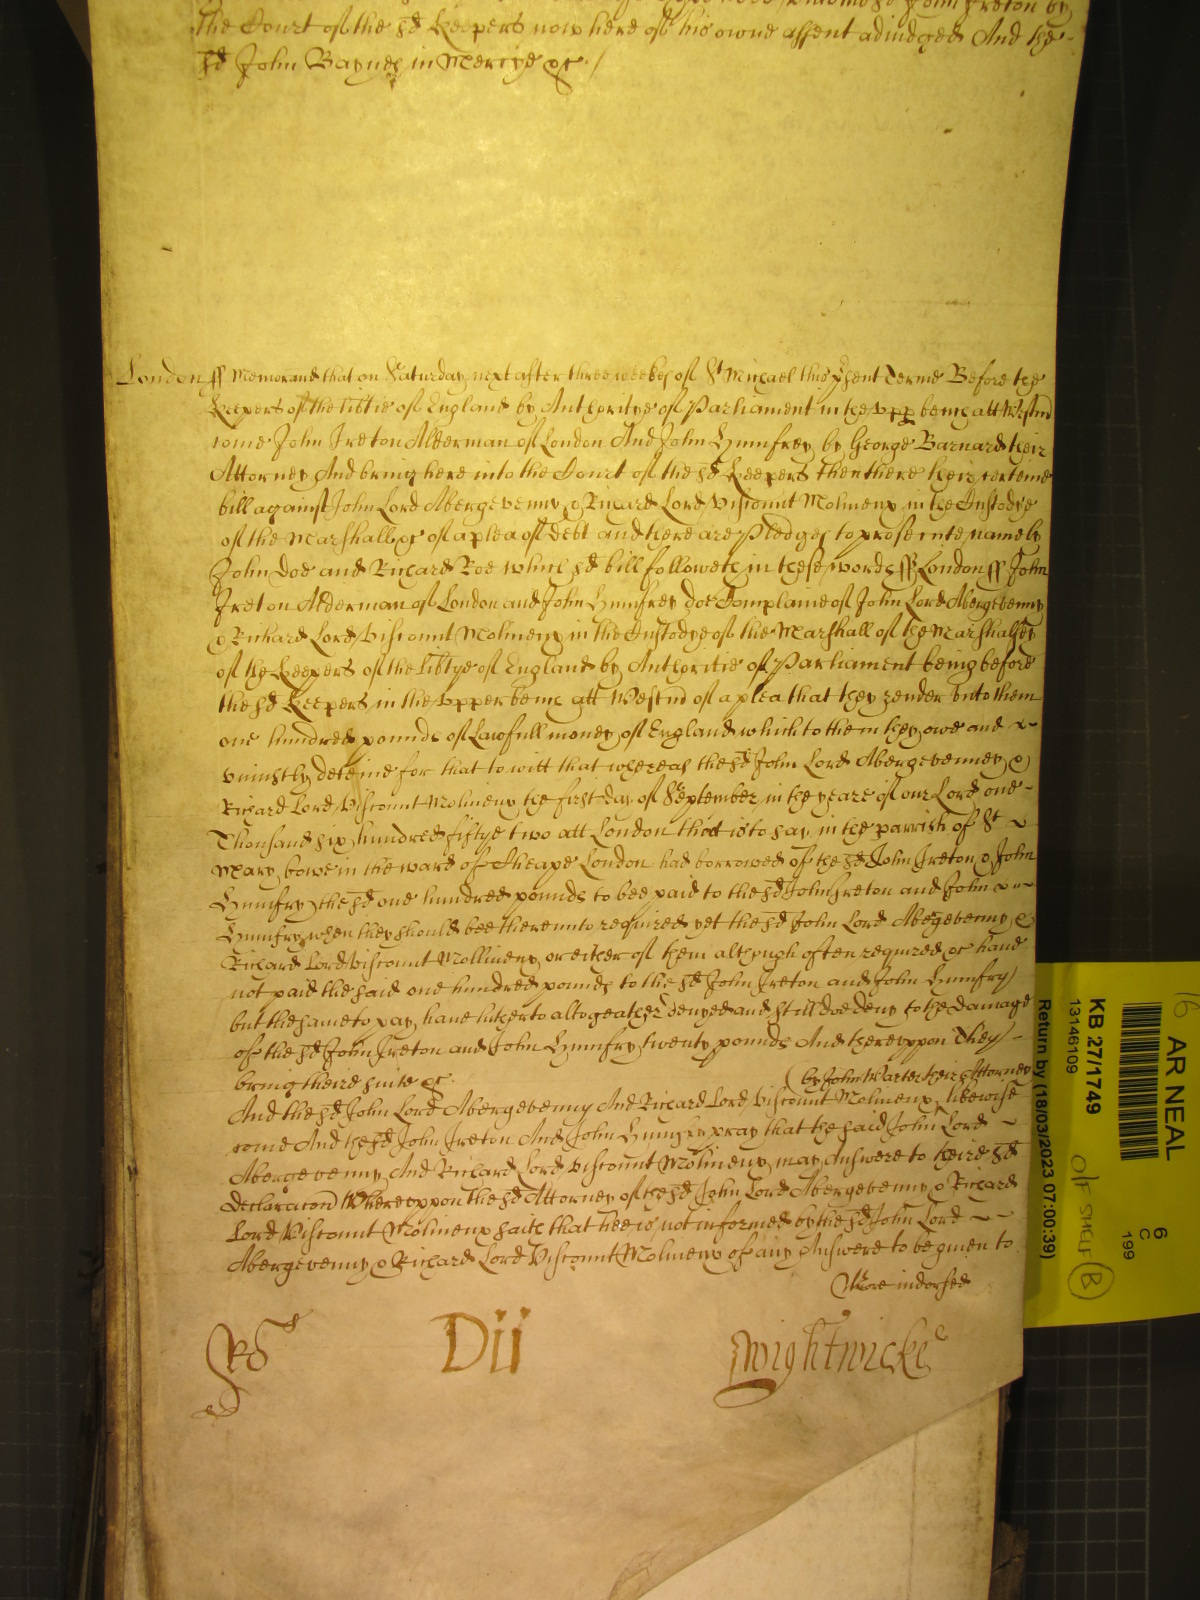 John Ireton by
the Court of the sd Keepers now here of his owne assent adiudged And the
sd John Baynes in Mercye &c /
London ss Memorand that on Saturday next after three weekes of St Michael this psent Terme Before the
Keepers of the libtie of England by Authoritye of Parliament in the vpp bench att Westm
come John Ireton Alderman of London And John Humfrey by George Barnard their
Attorney And bring here into the Court of the sd Keepers then there their certeine
bill against John Lord Abergevenny & Richard Lord Viscount Molineux in the Custodye
of the Marshall &c of a plea of debt and there are Pledges to prosecute namely
John Doe and Richard Roe which sd bill followeth in these words ss London ss John
Ireton Alderman of London and John Humfrey doe Complaine of John Lord Abergevenny
& Richard Lord Viscount Molineux in the Custodye of the Marshall of the Marshalsey
of the Keepers of the libtye of England by Authoritie of Parliament being before
the sd Keepers in the vpper bench att Westm of a plea that they render vnto them
one hundred pounds of Lawfull money of England which to them they owe and
vniustly deteine for that to witt that whereas the sd John Lord Abergevenney &
Richard Lord Viscount Molineux the first day of September in the yeare of our Lord one
Thousand six hundred fiftye two att London that is to say in the parrish of St
Mary bowe in the ward of Cheape London had borrowed of the sd John Ireton & John
Humfry the sd one hundred pounds to bee paid to the sd John Ireton and John
Humfry when they should bee therevnto required yet the sd John Lord Abegevenny &
Richard Lord Viscount Mollineux or either of them although often required &c haue
not paid the said one hundred pounds to the sd John Ireton and John Humfry
but the same to pay haue hitherto altogeather denyed and still doe deny to the damage
of the sd John Ireton and John Humfry twenty pounds And therevppon They
bring theire suite &c
by John Warter their Attorney
And the sd John Lord Abergevenny And Richard Lord Viscount Molineux likewise
come And the sd John Ireton And John Humfry pray that the said John Lord
Abergevenny And Richard Lord Viscount Molineux may Answere to theire sd
declaracon Wherevppon the sd Attorney of the sd John Lord Abergevenny & Richard
Lord Viscount Molineux saith that hee is not informed by the sd John Lord
Abergevenny & Richard Lord Viscount Molineux of any Answere to be giuen to
More indorsed
Ro
Dii
Wightwicke
16
AR NEAL
KB 27/1749
13146109
Return by (18/03/2023 07:00:39)
6
C
199
O/F SHELF
B